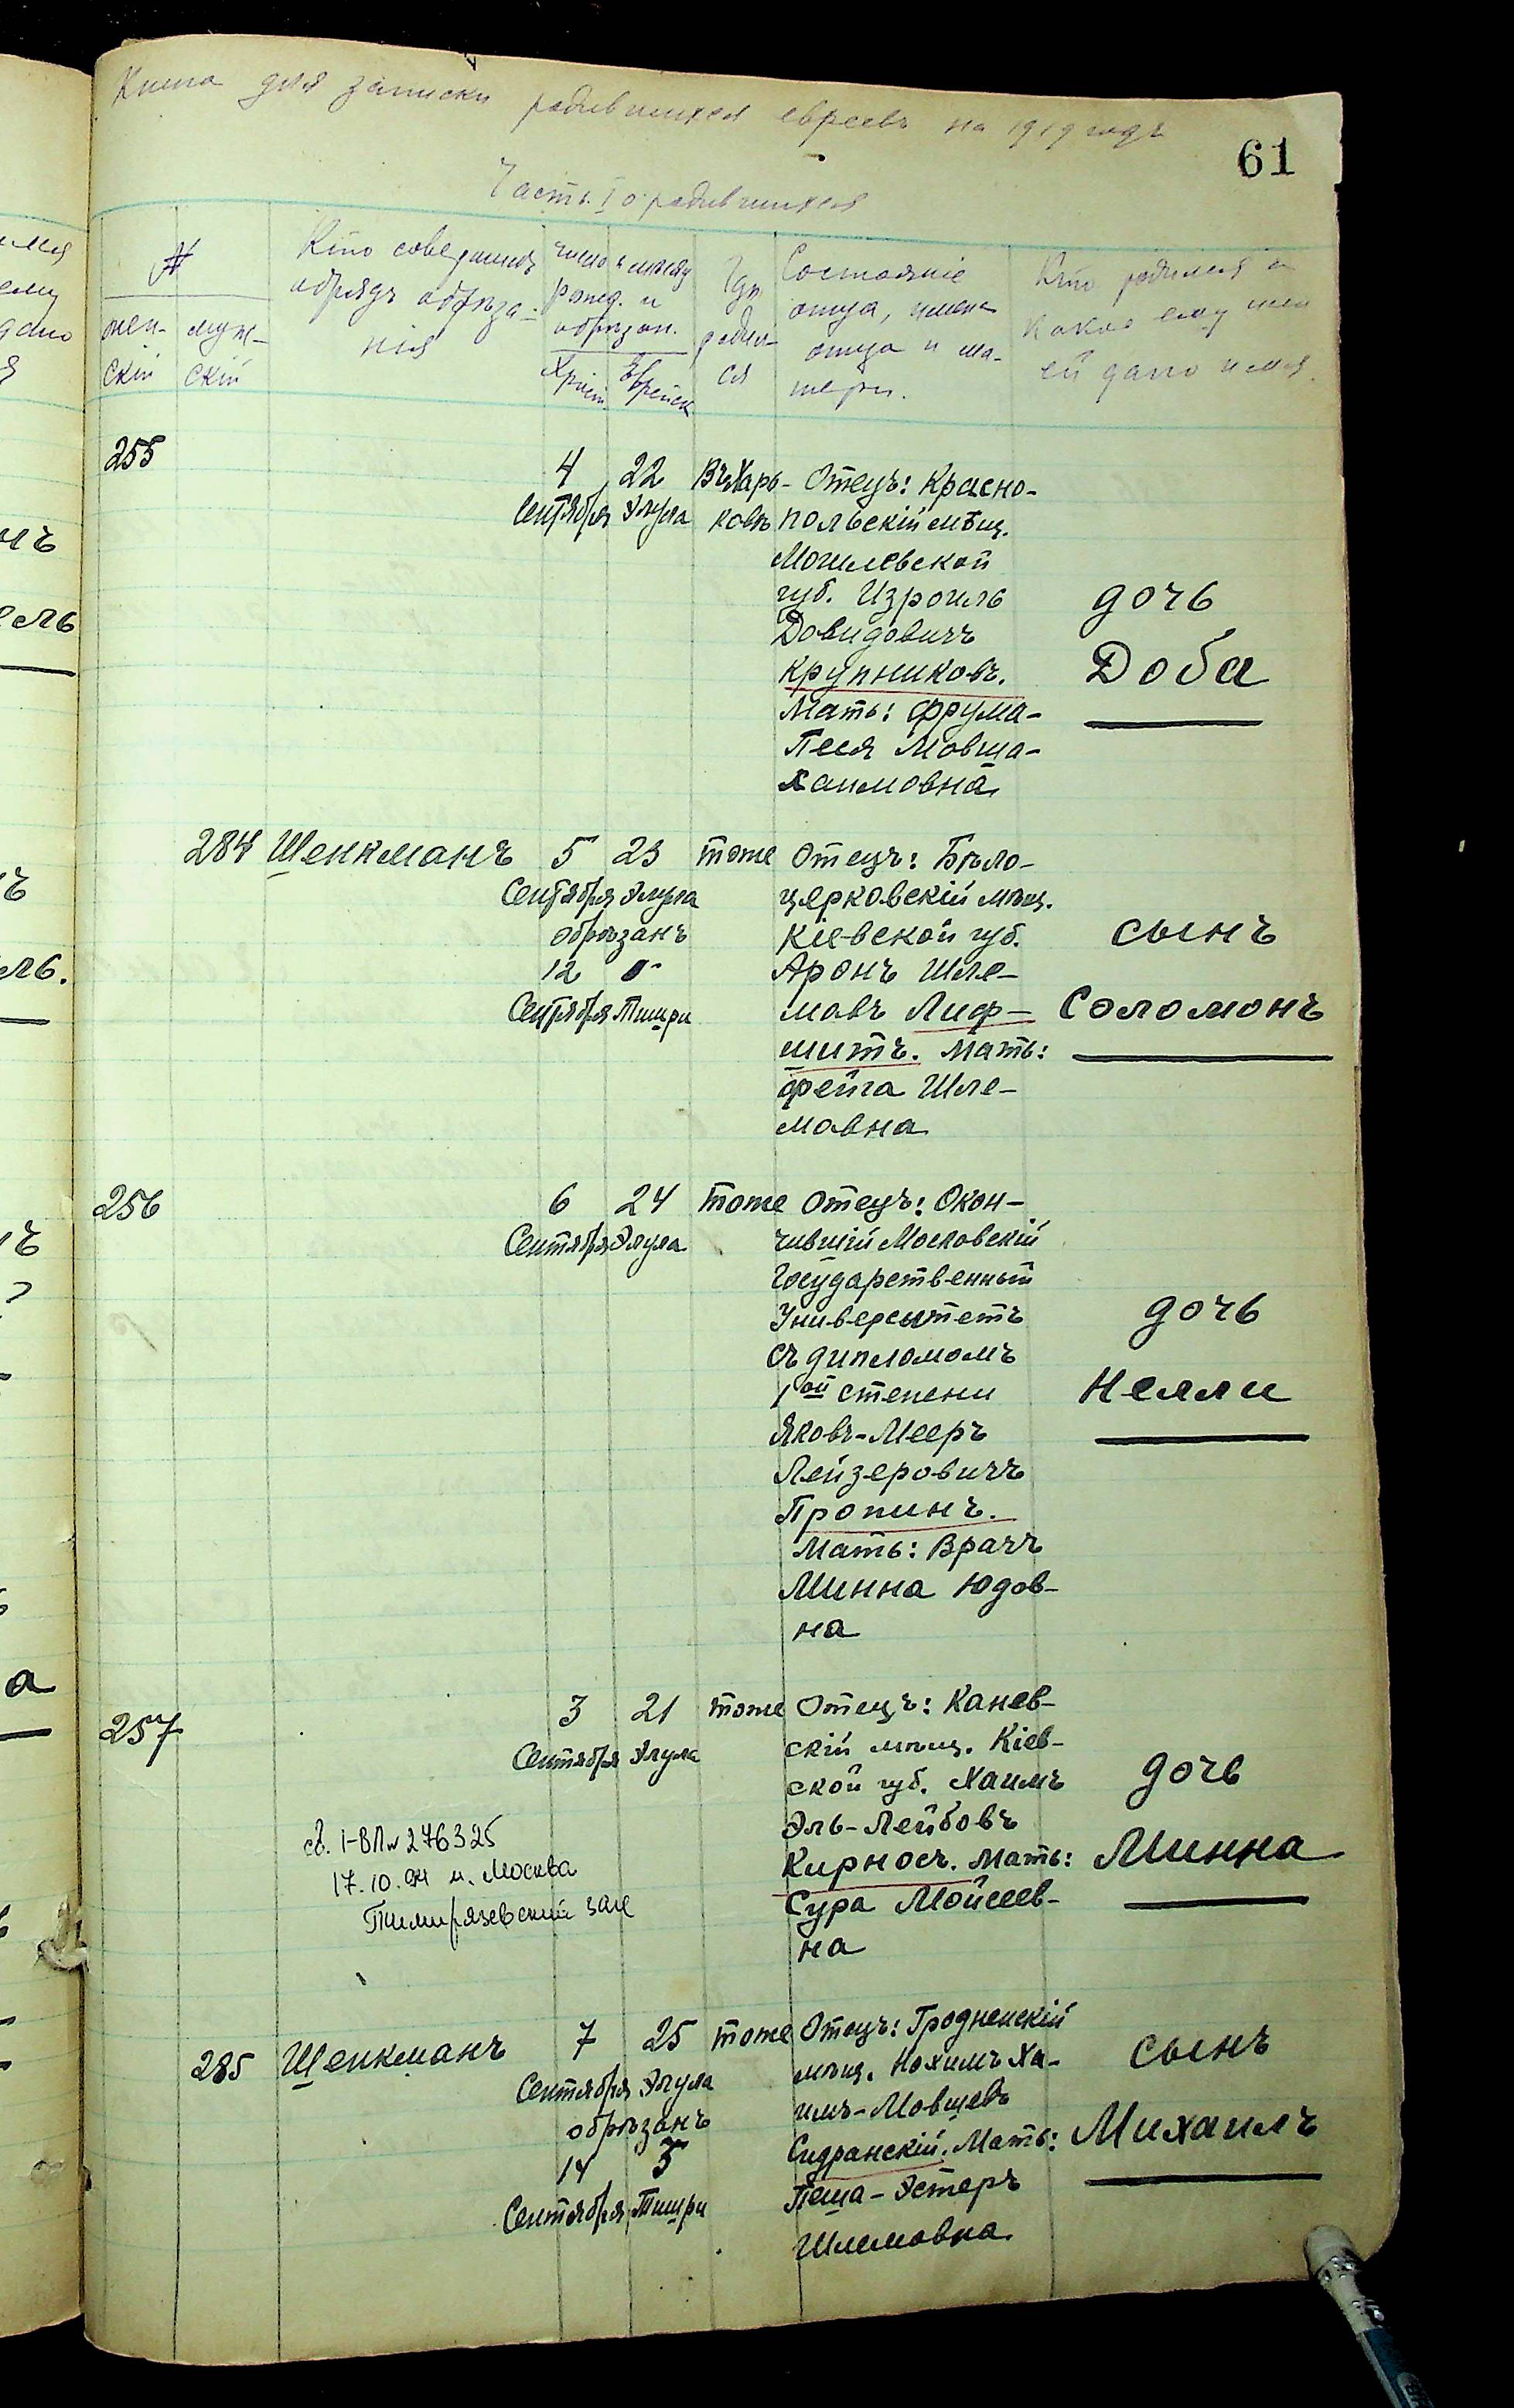 Книга для записки родившихся евреевъ на 1919 годъ
61
Часть I о родившихся
№
жен-
скій
муж-
скій
Кто совершилъ
обрядъ обрѣза-
нія
число и мѣсяц
рожд. и
обрѣзан.
Христ.
Еврейск
Гдѣ
родил-
ся
Состояніе
отца, имена
отца и ма-
тери.
Кто родился и
какое ему или
ей дано имя.
255
4 22 Въ Харь-
Сентября Элула ковѣ
Отецъ: Красно-
польскій мѣщ.
Могилевской
губ. Израиль
Довидовичъ
Крупниковъ.
Мать: Фрума-
Песя Мовша-
Хаимовна
дочь
Доба
284 Шенкманъ 5 23 тоже
Сентября Элула
обрѣзанъ
12
Сентября Тишри
Отецъ: Бѣло-
церковскій мѣщ.
Кіевской губ.
Аронъ Шле-
мовъ Лиф-
шитъ. Мать:
Фейга Шле-
мовна
сынъ
Соломонъ
256
6 24 тоже
Сентября Элула
Отецъ: Окон-
чившій Московскій
Государственный
Университетъ
съ дипломомъ
1ой степени
Яковъ-Мееръ
Лейзеровичъ
Пропинъ.
Мать: Врачъ
Минна Юдов-
на
дочь
Нелли
257
3 21 тоже
Сентября Элула
св. I-ВЛ № 276325
17.10.94 г. Москва
Тимирязевский заг
Отецъ: Канев-
скій мѣщ. Кіев-
ской губ. Хаимъ
Эль-Лейбовъ
Кирносъ. Мать:
Сура Мойсеев-
на
дочь
Минна
285 Шенкманъ 7 25 тоже
Сентября Элула
обрѣзанъ
14 3
Сентября Тишри
Отецъ: Гродненскій
мѣщ. Нохимъ Ха-
имъ-Мовшевъ
Сидранскій. Мать:
Пеша-Эстеръ
Шлемовна
сынъ
Михаилъ